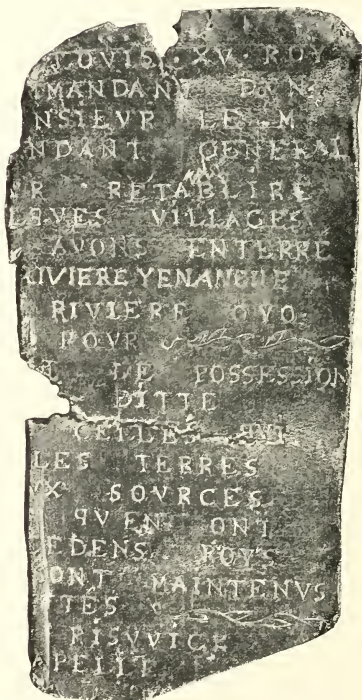 LOUIS · XV · ROY
MANDANT DVN
NSIEVR LE M
NDANT GENERAL
R RETABLIRE
LQVES VILLAGES
AVONS ENTERRE
RIVIERE YENANGUE
RIVIERE OYO
POVR
DE POSSESSION
DITTE
CELLES QVI
LES TERRES
VX SOVRCES
QVEN ONT
EDENS ROYS
ONT MAINTENVS
TES
RISVVICK
PELLE